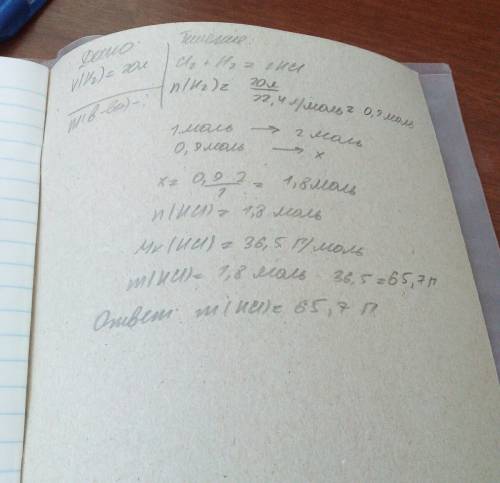 Дано:
V(H₂) = 20л
m(в-ва) - ?
Решение:
Cl₂ + H₂ = 2HCl
n(H₂) = 20л / 22,4 л/моль = 0,9 моль
1 моль → 2 моль
0,9 моль → x
x = 0,9 · 2 / 1 = 1,8 моль
n(HCl) = 1,8 моль
Mr(HCl) = 36,5 г/моль
m(HCl) = 1,8 моль · 36,5 = 65,7 г
Ответ: m(HCl) = 65,7 г